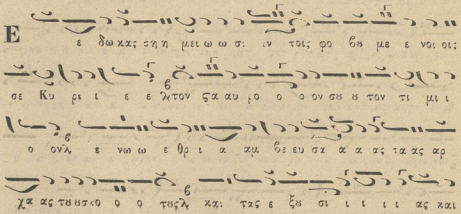 Ε ε δω κας ση η μει ω ω σι ιν τοις φο βȣ με ε νοι οις
σε Κυ ρι ι ε ε τον ϛα αυ ρο ο ο ον σȣ ȣ τον τι μι ι
ο ον ε νω ω ε θρι ι α αμ βε ευ σα α α ας τα ας αρ
χα ας τȣ ȣ σκο ο ο τȣς και τας ε ξȣ σι ι ι ι ας και